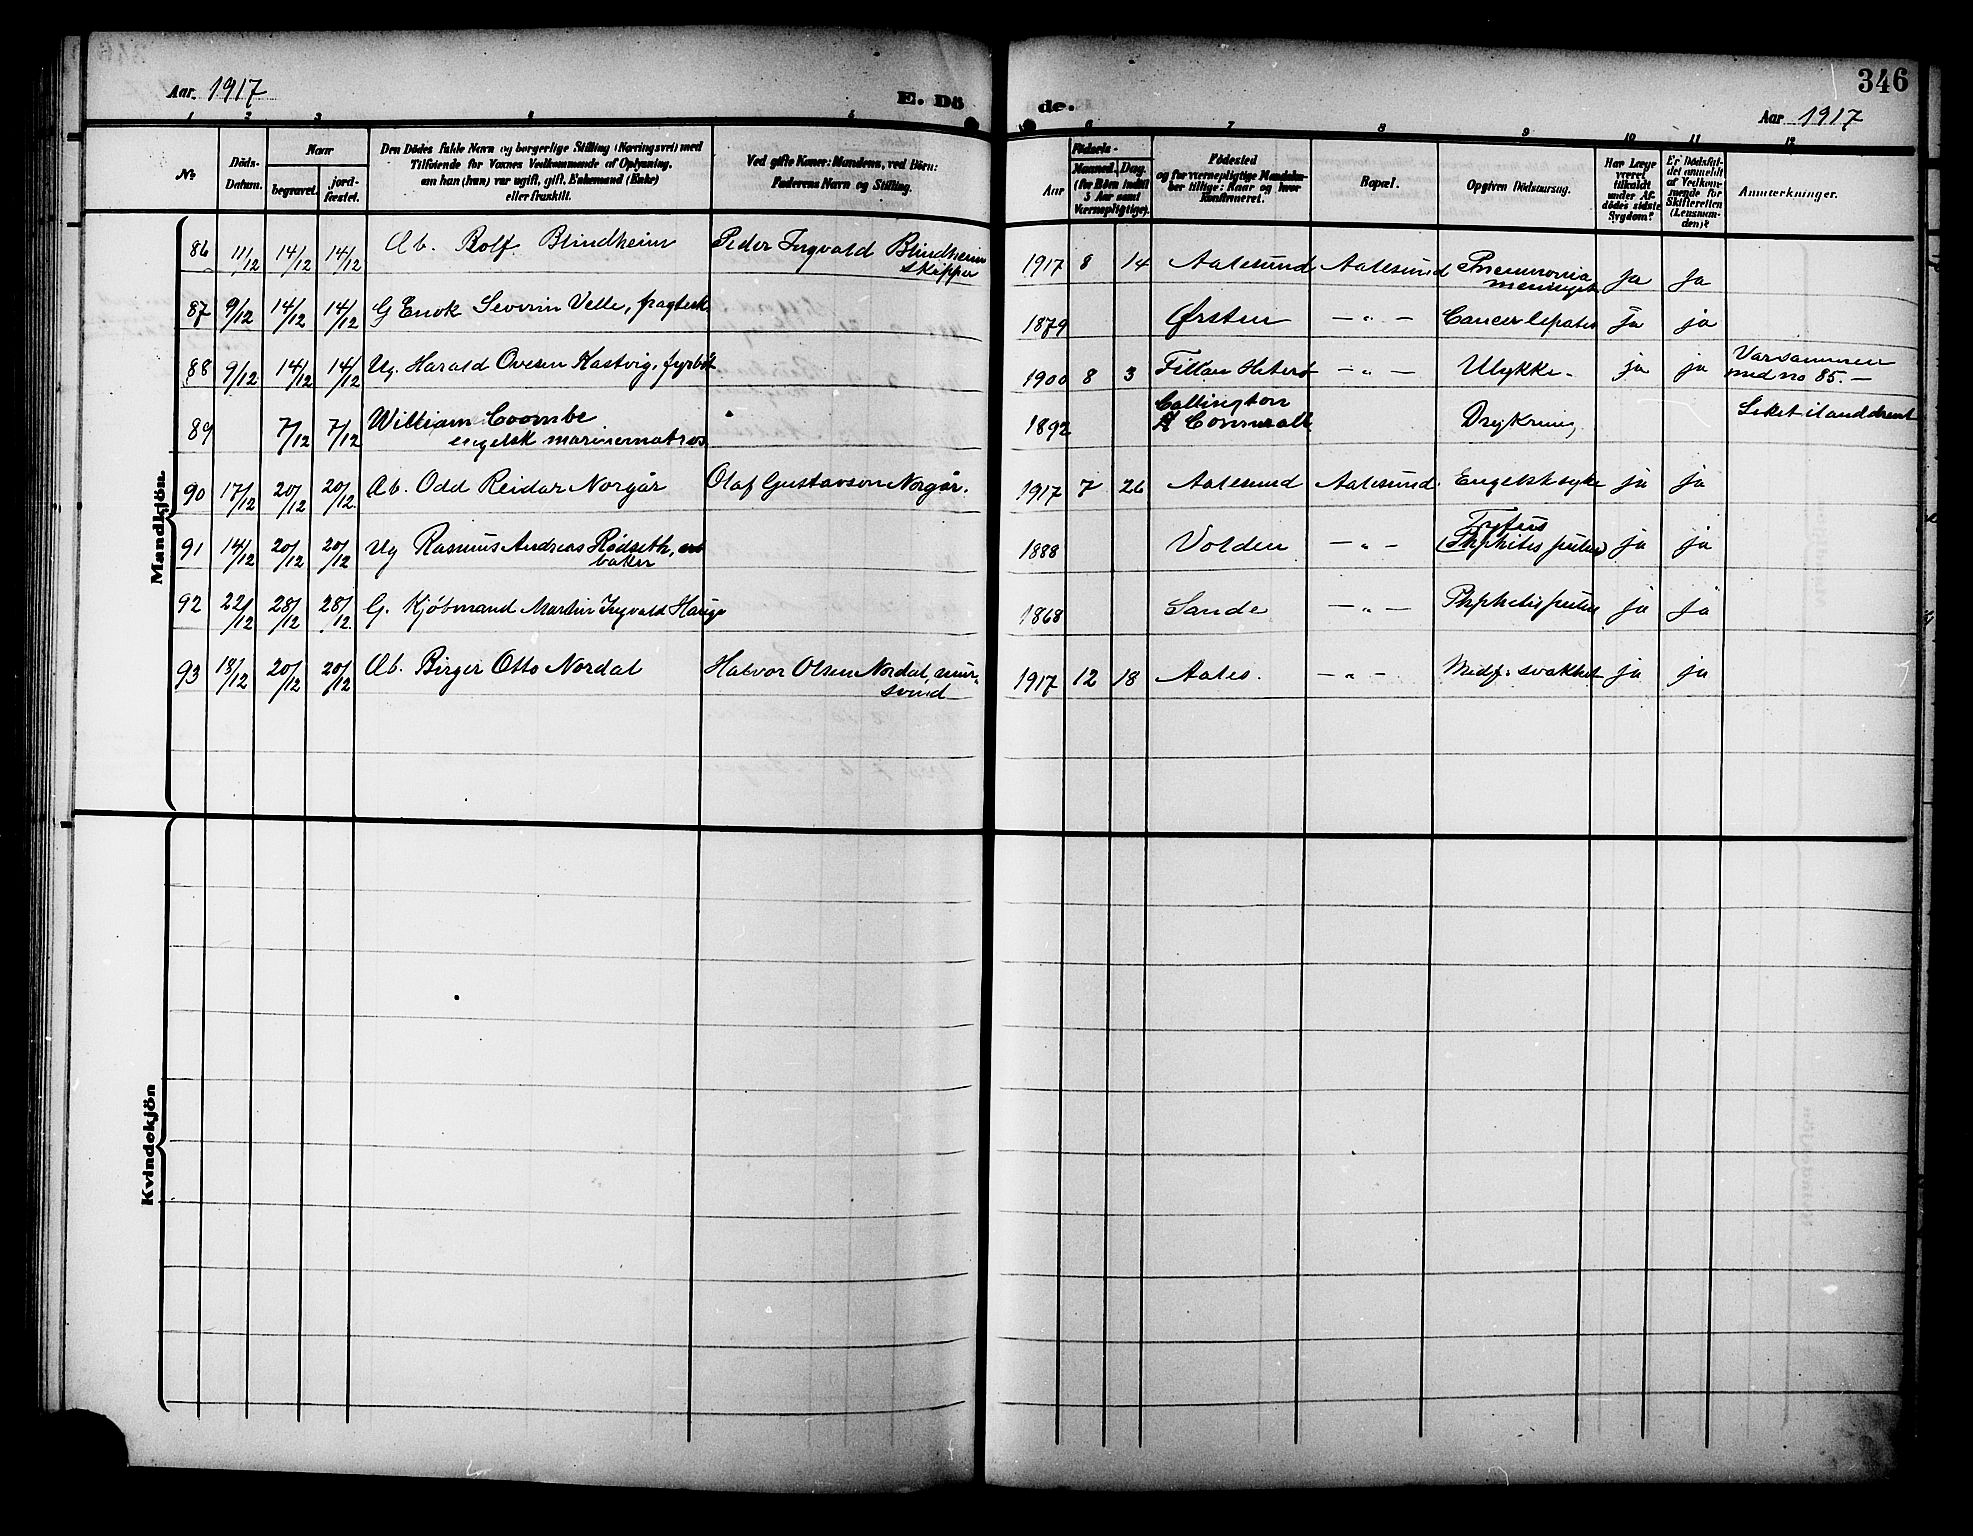 346
Aar 1917
E. Dö de.
Aar 1917
1 2 3 4 5 6 7 8 9 10 11 12
No
Döds-Datum.
Naar
begravet.
jord-fæstet.
Den Dödes fulde Navn og borgerlige Stilling (Næringsvei) med
Tilföiende for Voxnes Vedkommende af Oplysning,
om han (hun) var ugift, gift, Enkemand (Enke)
eller fraskilt.
Ved gifte Koner: Mandens, ved Börn:
Faderens Navn og Stilling.
Födsels-
Aar
Maaned. Dag.
(for Börn indtil
5 Aar samt
Værnepligtige).
Födested
og for værnepligtige Mandskaber tillige: Naar og hvor
konfirmeret.
Bopæl.
Opgiven Dödsaarsag.
Har Læge
været
tilkaldt
under Afdödes sidste
Sygdom?
Er Dödsfaldet anmeldt
af Vedkommende for
Skifteretten
(Lensmanden)?
Anmærkninger.
Mandkjön.
86 11/12 14/12 14/12 Ab. Rolf Blindheim Peder Ingvald Blindheim skipper 1917 8 14 Aalesund Aalesund Pneumonia ja ja
87 9/12 14/12 14/12 G Enok Severin Velle, fragtesk. 1879 Ørsten — " — Cancer hepatis ja ja
88 9/12 14/12 14/12 Ug. Harald Ovesen Hastvig, fyrböt 1900 8 3 Fillan Hiterö — " — Ulykke ja ja Var sammen med no 85. —
89 7/12 7/12 William Coombe engelsk marinematros 1892 Callington Cornwall Druknung Liket ilanddrevet
90 17/12 20/12 20/12 Ab. Odd Reidar Norgår Olaf Gustavson Norgår. 1917 7 26 Aalesund Aalesund. Engelsksyke ja ja
91 14/12 20/12 20/12 Ug Rasmus Andreas Rödseth, baker 1888 Volden — " — Tyfus ja ja
92 22/12 28/12 28/12 G. Kjöbmand Martin Ingvald Hauge 1868 Sande — " — ja ja
93 18/12 20/12 20/12 Ab. Birger Otto Nordal Halvor Olsen Nordal, mursvend 1917 12 18 Aales. — " — Medf. svakhet ja ja
Kvindekjön